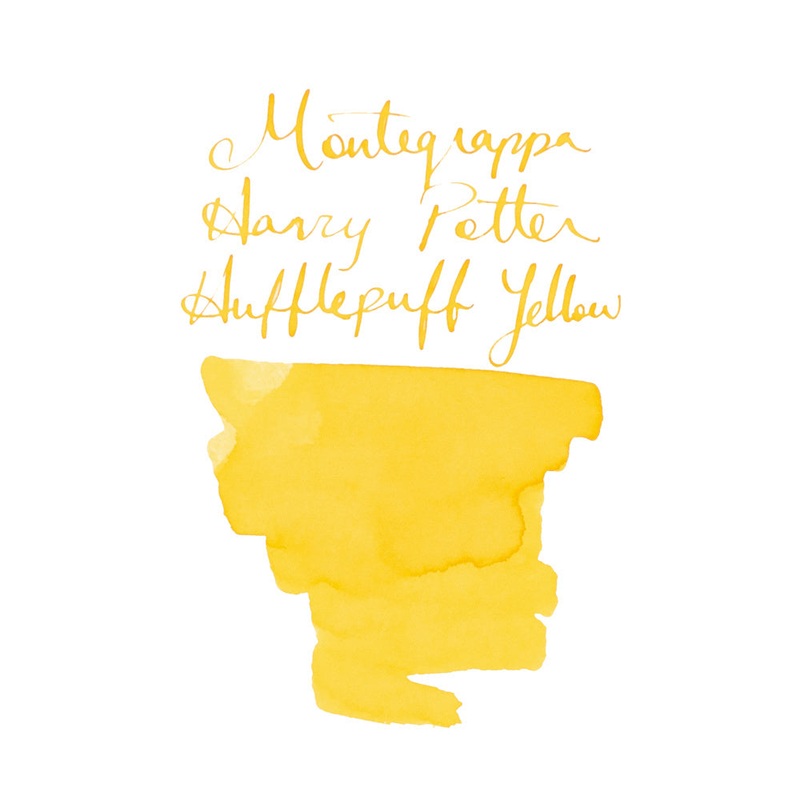 Montegrappa
Harry Potter
Hufflepuff Yellow